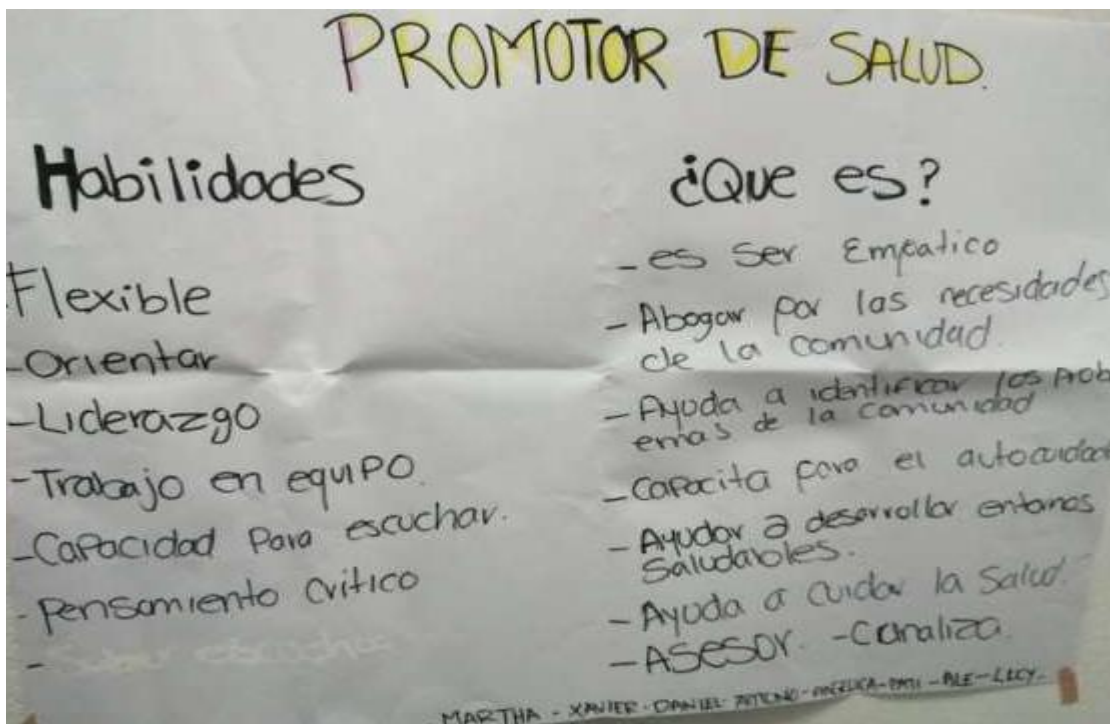 PROMOTOR DE SALUD.
Habilidades
Flexible
-Orientar
-Liderazgo
-Trabajo en equipo.
-Capacidad para escuchar.
-Pensamiento crítico
- Saber escuchar
¿Que es?
-es ser Empatico
-Abogar por las necesidades
de la comunidad.
-Ayuda a identificar los Probl
emas de la comunidad
-Capacita para el autocuidado
-Ayudar a desarrollar entornos
Saludables.
-Ayuda a cuidar la Salud.
-ASESOR. -Canaliza.
MARTHA - XAVIER - DANIEL - ANGELICA - PATI - ALE - LUCY -